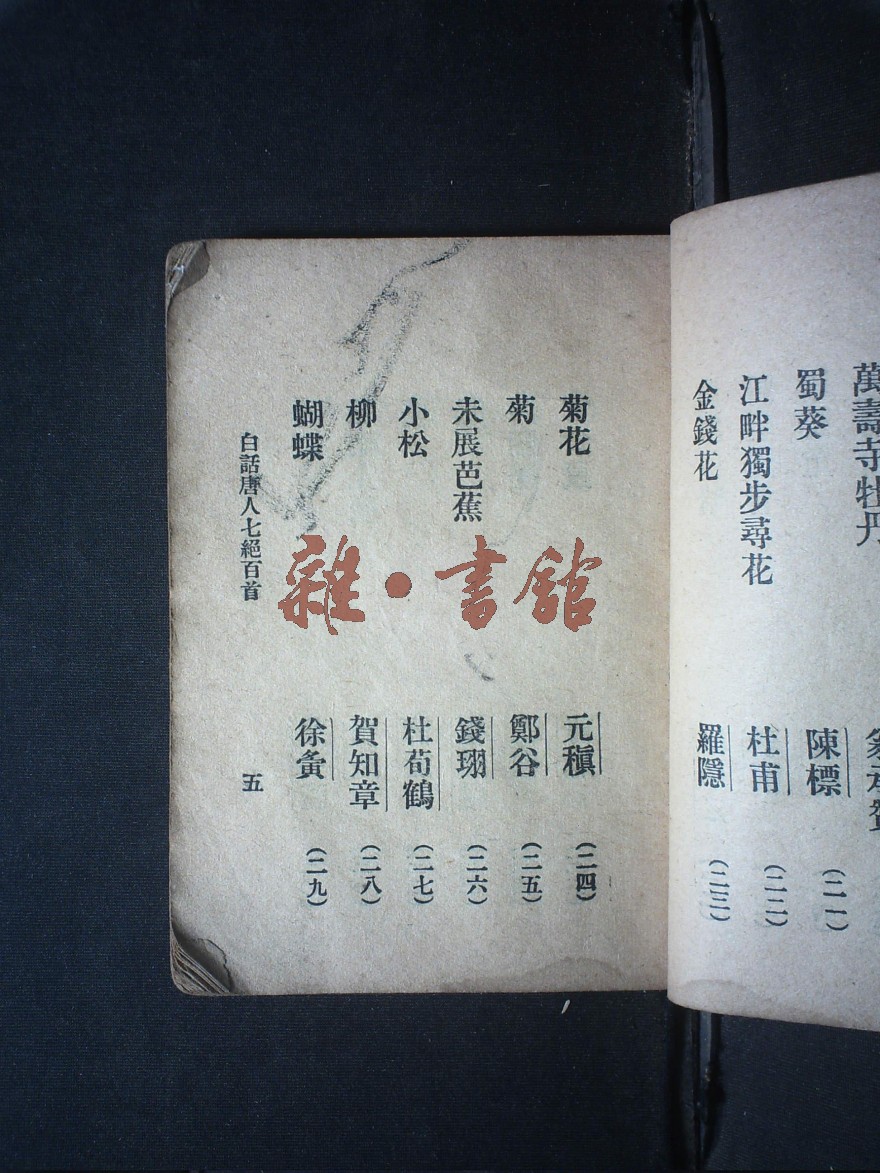 萬壽寺牡丹
蜀葵 陳標 (二一)
江畔獨步尋花 杜甫 (二二)
金錢花 羅隱 (二三)
菊花 元稹 (二四)
菊 鄭谷 (二五)
未展芭蕉 錢珝 (二六)
小松 杜荀鶴 (二七)
柳 賀知章 (二八)
蝴蝶 徐夤 (二九)
白話唐人七絕百首 五
雜·書館